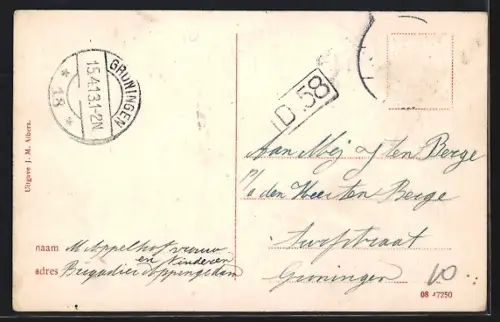 GRONINGEN
15.4.13.1-2N
* 18 *
D 58
Uitgave J. M. Albers.
Aan Mej J ten Berge
p/a den Heer ten Berge
Turfstraat
Groningen
10
naam M Appelhof vrouw
en Kinderen
adres Brigadier Appingedam
08 47250